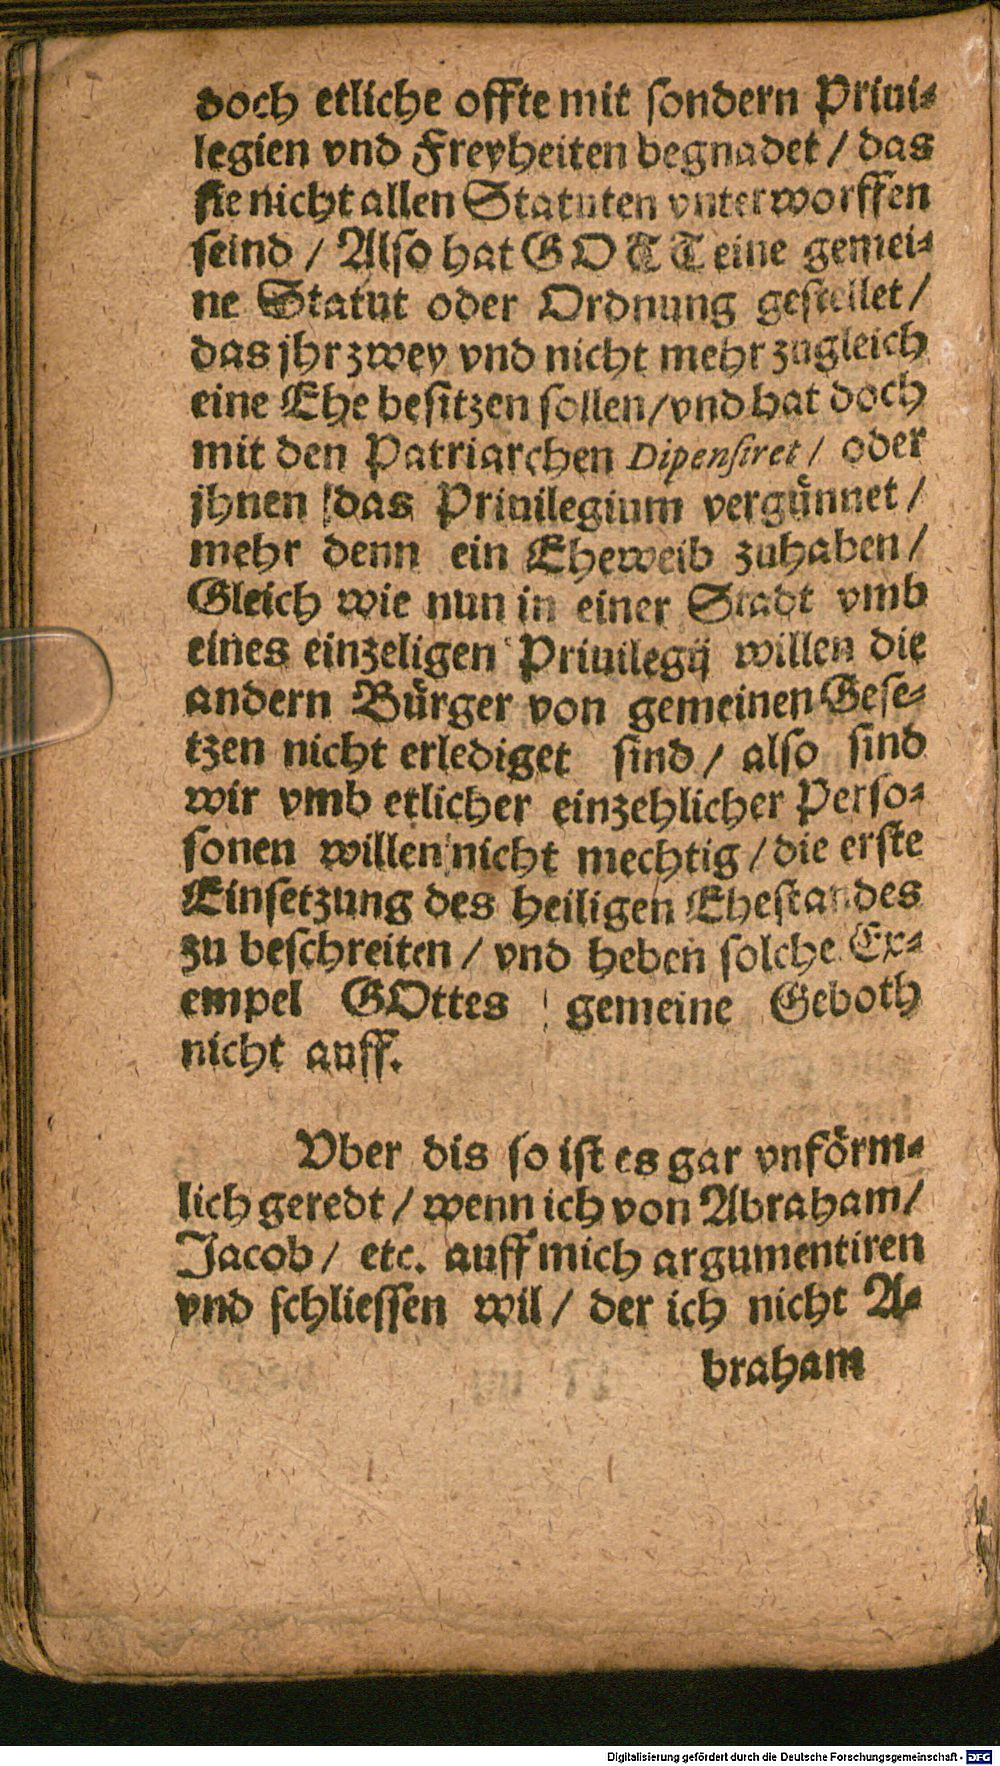 doch etliche offte mit sondern Priui-
legien vnd Freyheiten begnadet / das
sie nicht allen Statuten vnterworffen
seind / Also hat GOTT eine gemei-
ne Statut oder Ordnung gestellet /
das jhr zwey vnd nicht mehr zugleich
eine Ehe besitzen sollen / vnd hat doch
mit den Patriarchen Dipensiret / oder
jhnen das Priuilegium vergünnet /
mehr denn ein Eheweib zuhaben /
Gleich wie nun in einer Stadt vmb
eines einzeligen Priuilegij willen die
andern Bürger von gemeinen Gese-
tzen nicht erlediget sind / also sind
wir vmb etlicher einzehlicher Perso-
sonen willen nicht mechtig / die erste
Einsetzung des heiligen Ehestandes
zu beschreiten / vnd heben solche Ex-
empel GOttes gemeine Geboth
nicht auff.
Vber dis so ist es gar vnförm-
lich geredt / wenn ich von Abraham /
Jacob / etc. auff mich argumentiren
vnd schliessen wil / der ich nicht A-
braham
Digitalisierung gefördert durch die Deutsche Forschungsgemeinschaft - DFG